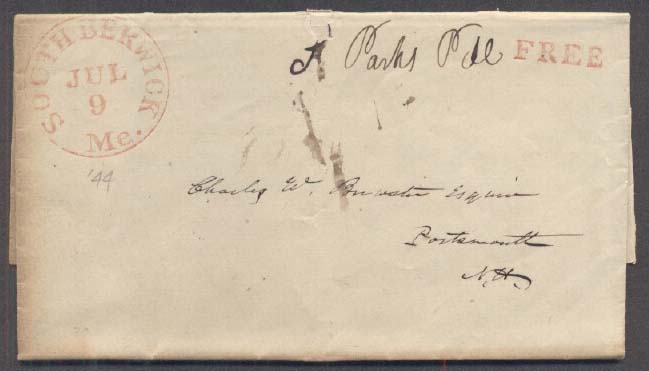 SOUTH BERWICK
JUL
9
Me.
Parks P M
FREE
'44
Charles W. Brewster Esquire
Portsmouth
N.H.